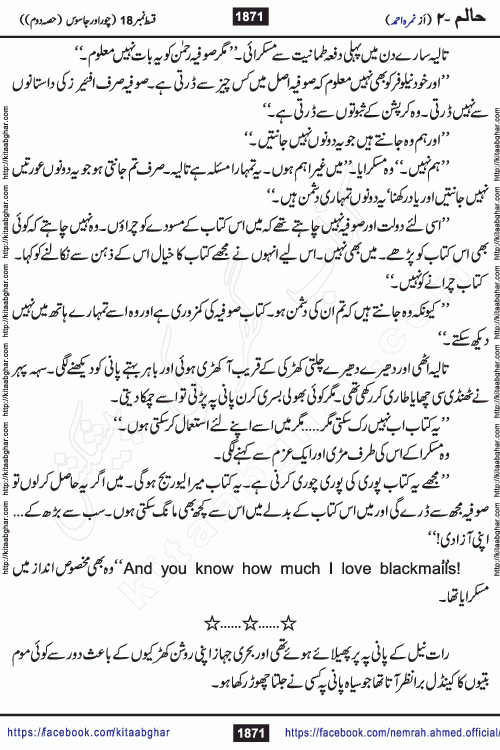 حالم -۲ (از نمرہ احمد) 1871 قسط نمبر 18 (چور اور جاسوس (حصہ دوم))
تالیہ سارے دن میں پہلی دفعہ طمانیت سے مسکرائی۔ ”مگر صوفیہ رحمٰن کو یہ بات نہیں معلوم۔“
”اور خود نیلوفر کو بھی نہیں معلوم کہ صوفیہ اصل میں کس چیز سے ڈرتی ہے۔ صوفیہ صرف افئیرز کی داستانوں
سے نہیں ڈرتی۔ وہ کرپشن کے ثبوتوں سے ڈرتی ہے۔“
”اور ہم وہ جانتے ہیں جو یہ دونوں نہیں جانتیں۔“
”ہم نہیں۔“ وہ مسکرایا۔ ”میں غیر اہم ہوں۔ یہ تمہارا مسئلہ ہے تالیہ۔ صرف تم جانتی ہو جو یہ دونوں عورتیں
نہیں جانتیں اور یاد رکھنا‘ یہ دونوں تمہاری دشمن ہیں۔“
”اسی لئے دولت اور صوفیہ نہیں چاہتے تھے کہ میں اس کتاب کے مسودے کو چراؤں۔ وہ نہیں چاہتے کہ کوئی
بھی اس کتاب کو پڑھے۔ میں بھی نہیں۔ اس لیے انہوں نے مجھے کتاب کا خیال اس کے ذہن سے نکالنے کو کہا۔
کتاب چرانے کو نہیں۔“
”کیونکہ وہ جانتے ہیں کہ تم ان کی دشمن ہو۔ کتاب صوفیہ کی کمزوری ہے اور وہ اسے تمہارے ہاتھ میں نہیں
دیکھ سکتے۔“
تالیہ اٹھی اور دھیرے دھیرے چلتی کھڑکی کے قریب آ کھڑی ہوئی اور باہر بہتے پانی کو دیکھنے لگی۔ سہہ پہر
نے ٹھنڈی سی چھایا طاری کر رکھی تھی۔ مگر کوئی بھولی بسری کرن پانی پہ پڑتی تو اسے چمکا دیتی۔
”یہ کتاب اب نہیں رک سکتی مگر..... مگر میں اسے اپنے لئے استعمال کر سکتی ہوں۔“
وہ مسکرا کے اس کی طرف مڑی اور ایک عزم سے کہنے لگی۔
”مجھے یہ کتاب پوری کی پوری چوری کرنی ہے۔ یہ کتاب میرا لیوریج ہو گی۔ میں اگر یہ حاصل کر لوں تو
صوفیہ مجھ سے ڈرے گی اور میں اس کتاب کے بدلے میں اس سے کچھ بھی مانگ سکتی ہوں۔ سب سے بڑھ کے...
اپنی آزادی!“
And you know how much I love blackmails!“ وہ بھی مخصوص انداز میں
مسکرایا تھا۔
☆......☆......☆
رات نیل کے پانی پہ پر پھیلائے ہوئے تھی اور بحری جہاز اپنی روشن کھڑکیوں کے باعث دور سے کوئی موم
بتیوں کا کینڈل برا نظر آتا تھا جو سیاہ پانی پہ کسی نے جلتا چھوڑ رکھا ہو۔
https://facebook.com/kitaabghar 1871 https://facebook.com/nemrah.ahmed.official/
http://kitaabghar.com http://kitaabghar.com http://kitaabghar.com http://kitaabghar.com
http://kitaabghar.com http://kitaabghar.com http://kitaabghar.com http://kitaabghar.com